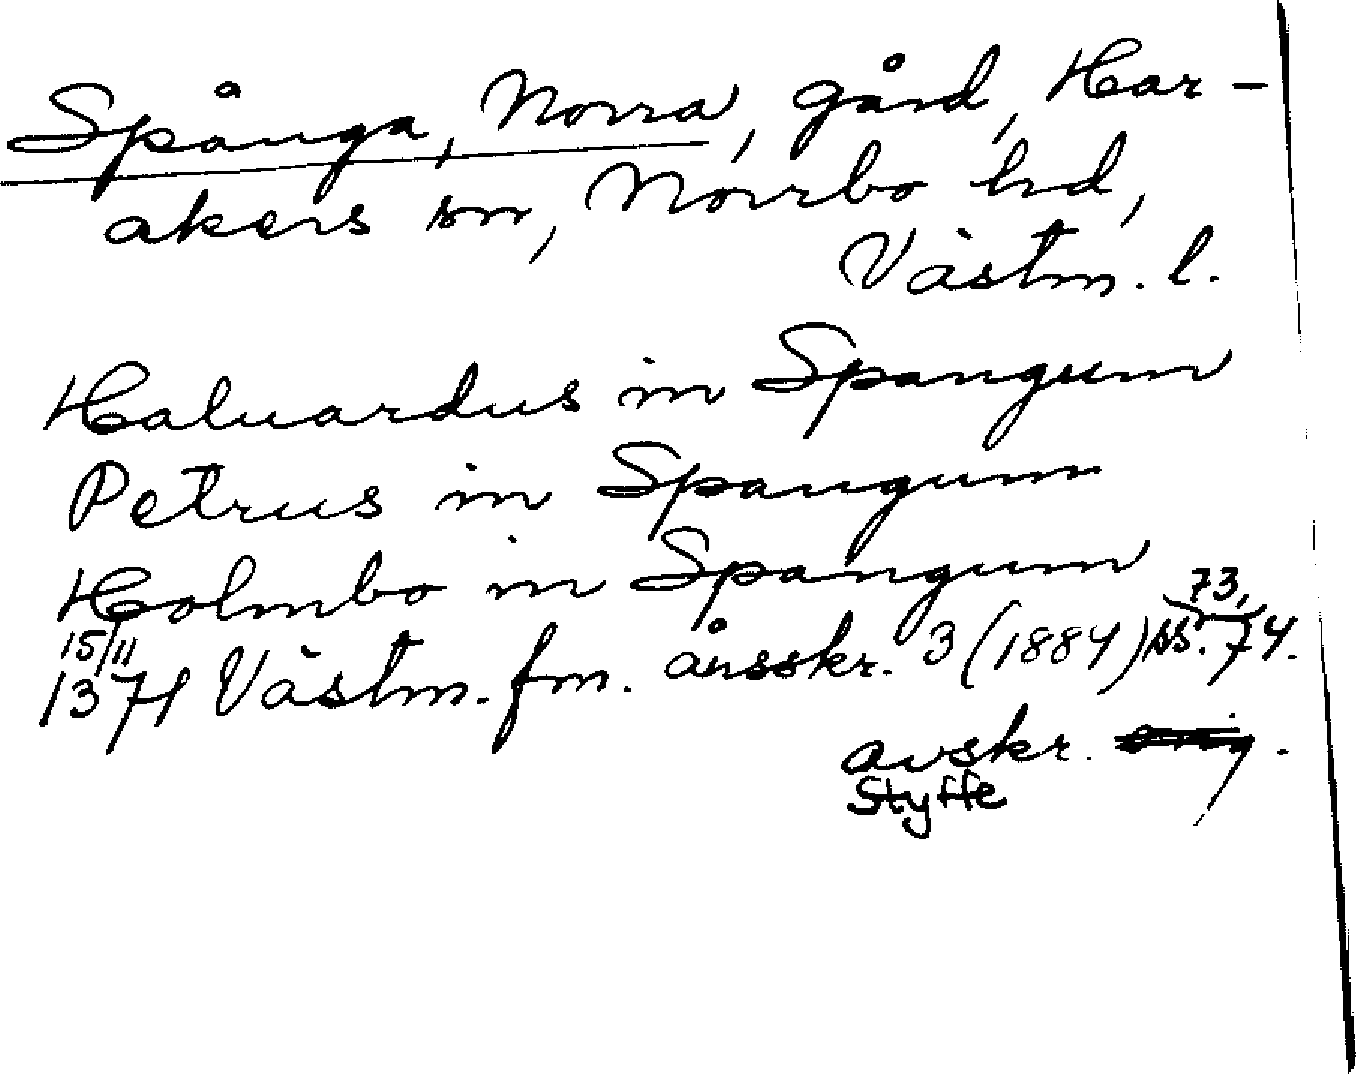 Spånga, Norra, gård, Har-
akers sn, Norrbo hd,
Västm. l.
Haluardus in Spangum
Petrus in Spangum
Holmbo in Spangum
15/11 73,
1371 Västm. fm. årsskr. 3 (1884) ss. 74.
avskr. orig.
Styffe